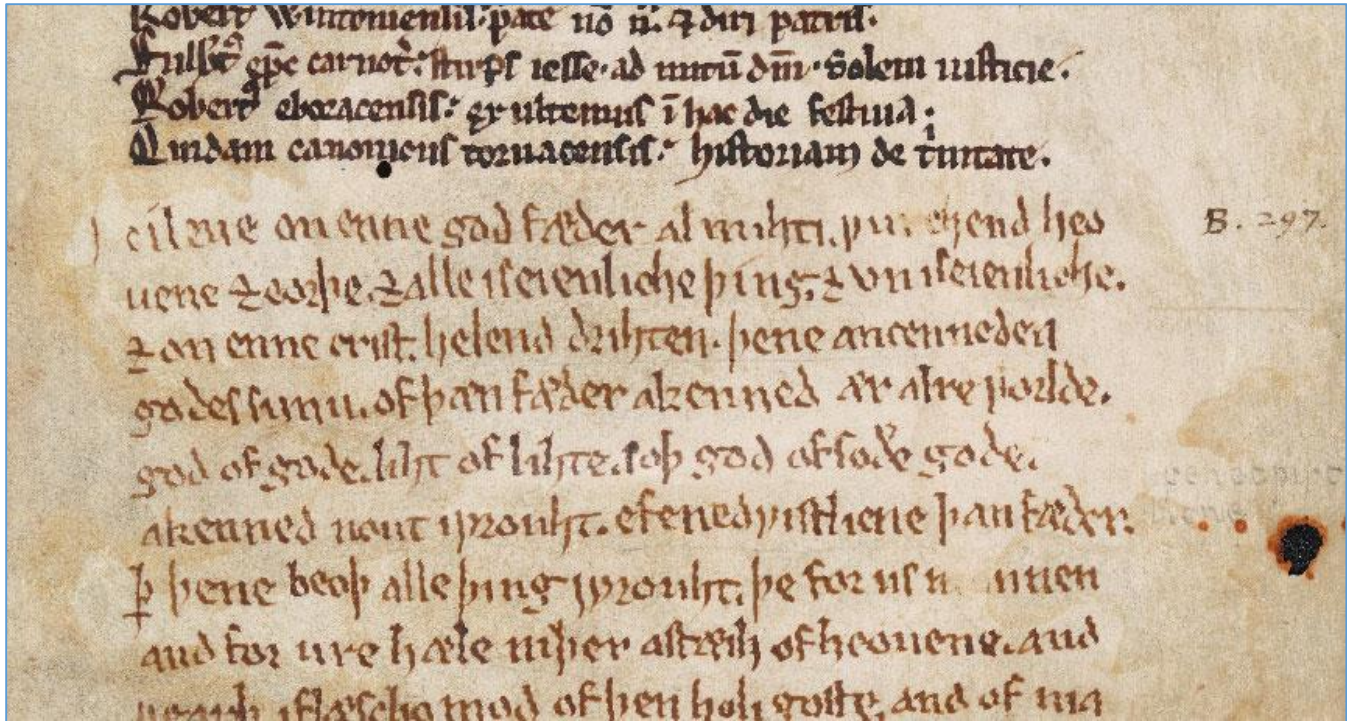 Robert Wintoniensis. pate nr̄. ⁊ diri patris.
Fulbert' ep̄c carnot'. stirps iesse. ad nutū dm̄. Solem iusticie.
Robert' eboracensis. exultemus ī hac die festiua;
Quidam canonicus tornacensis. historiam de t'nitate.
c ileue on enne god fæder almihti. ƿurchend heo B. 297.
uene ⁊ eorþe. ⁊ alle iseienliche þing. ⁊ vniseienliche.
⁊ on enne crist. helend drihten. þene ancenneden
godes sunu. of þan fæder akenned ær alre ƿorlde.
god of gode. liht of lihte. soþ god of soðe gode.
akenned nout iƿrouht. efenedƿistliene þan fæder.
þurh þene beoþ alle þing iƿrouht. þe for us
and for ure hæle niþer astæih of heouene. and
ƿearþ iflæschomod of þen holi goste, and of ma